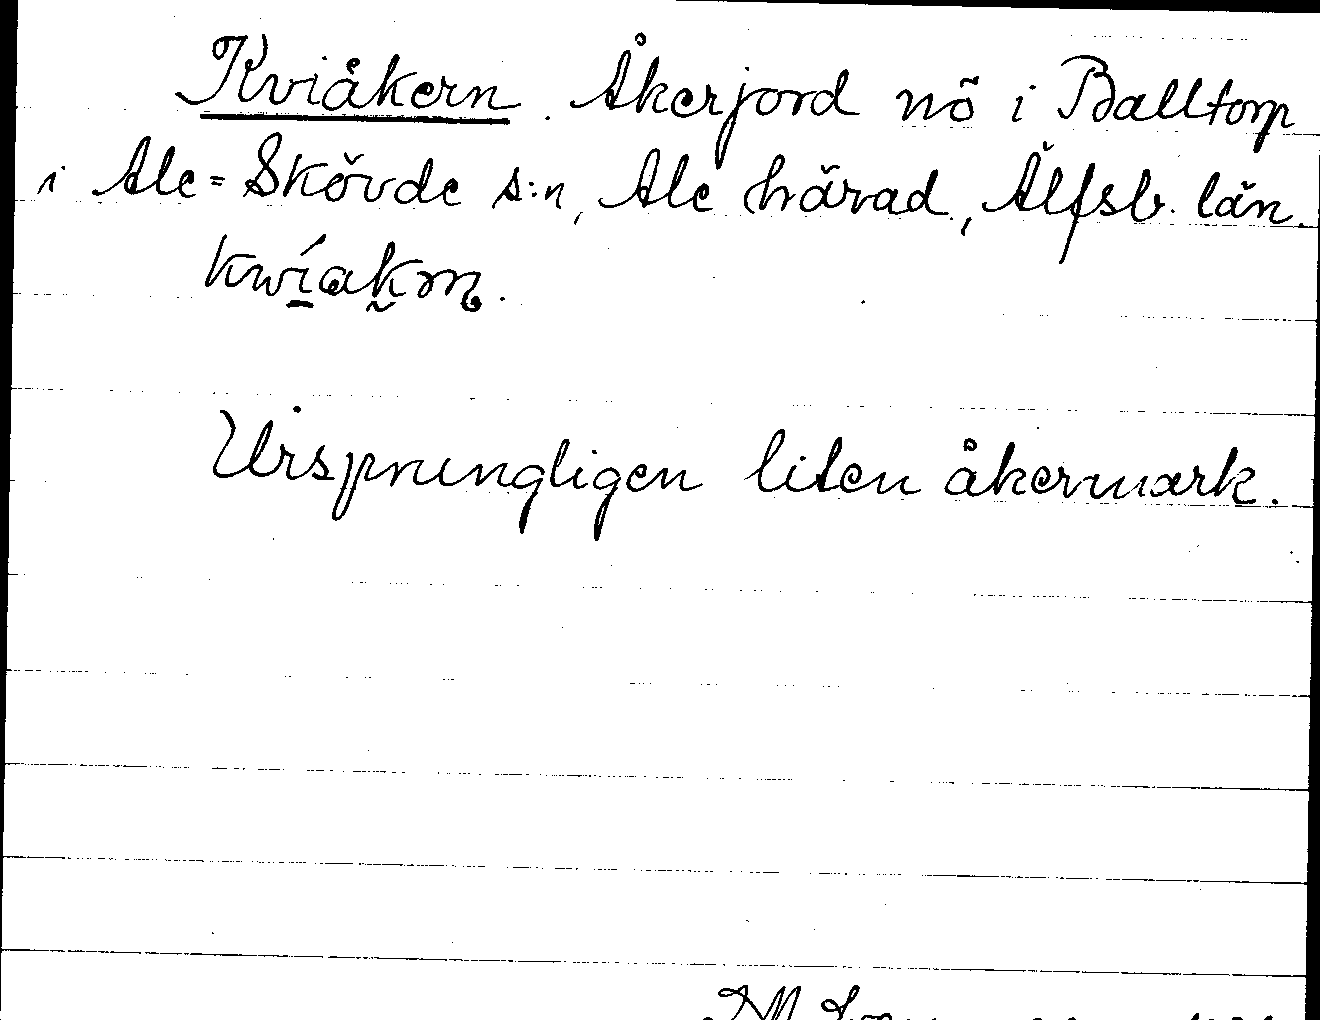 Kviåkern. Åkerjord nö i Balltorp
i Ale=Skövde s:n, Ale härad, Älfsb. län.
Ursprungligen liten åkermark.